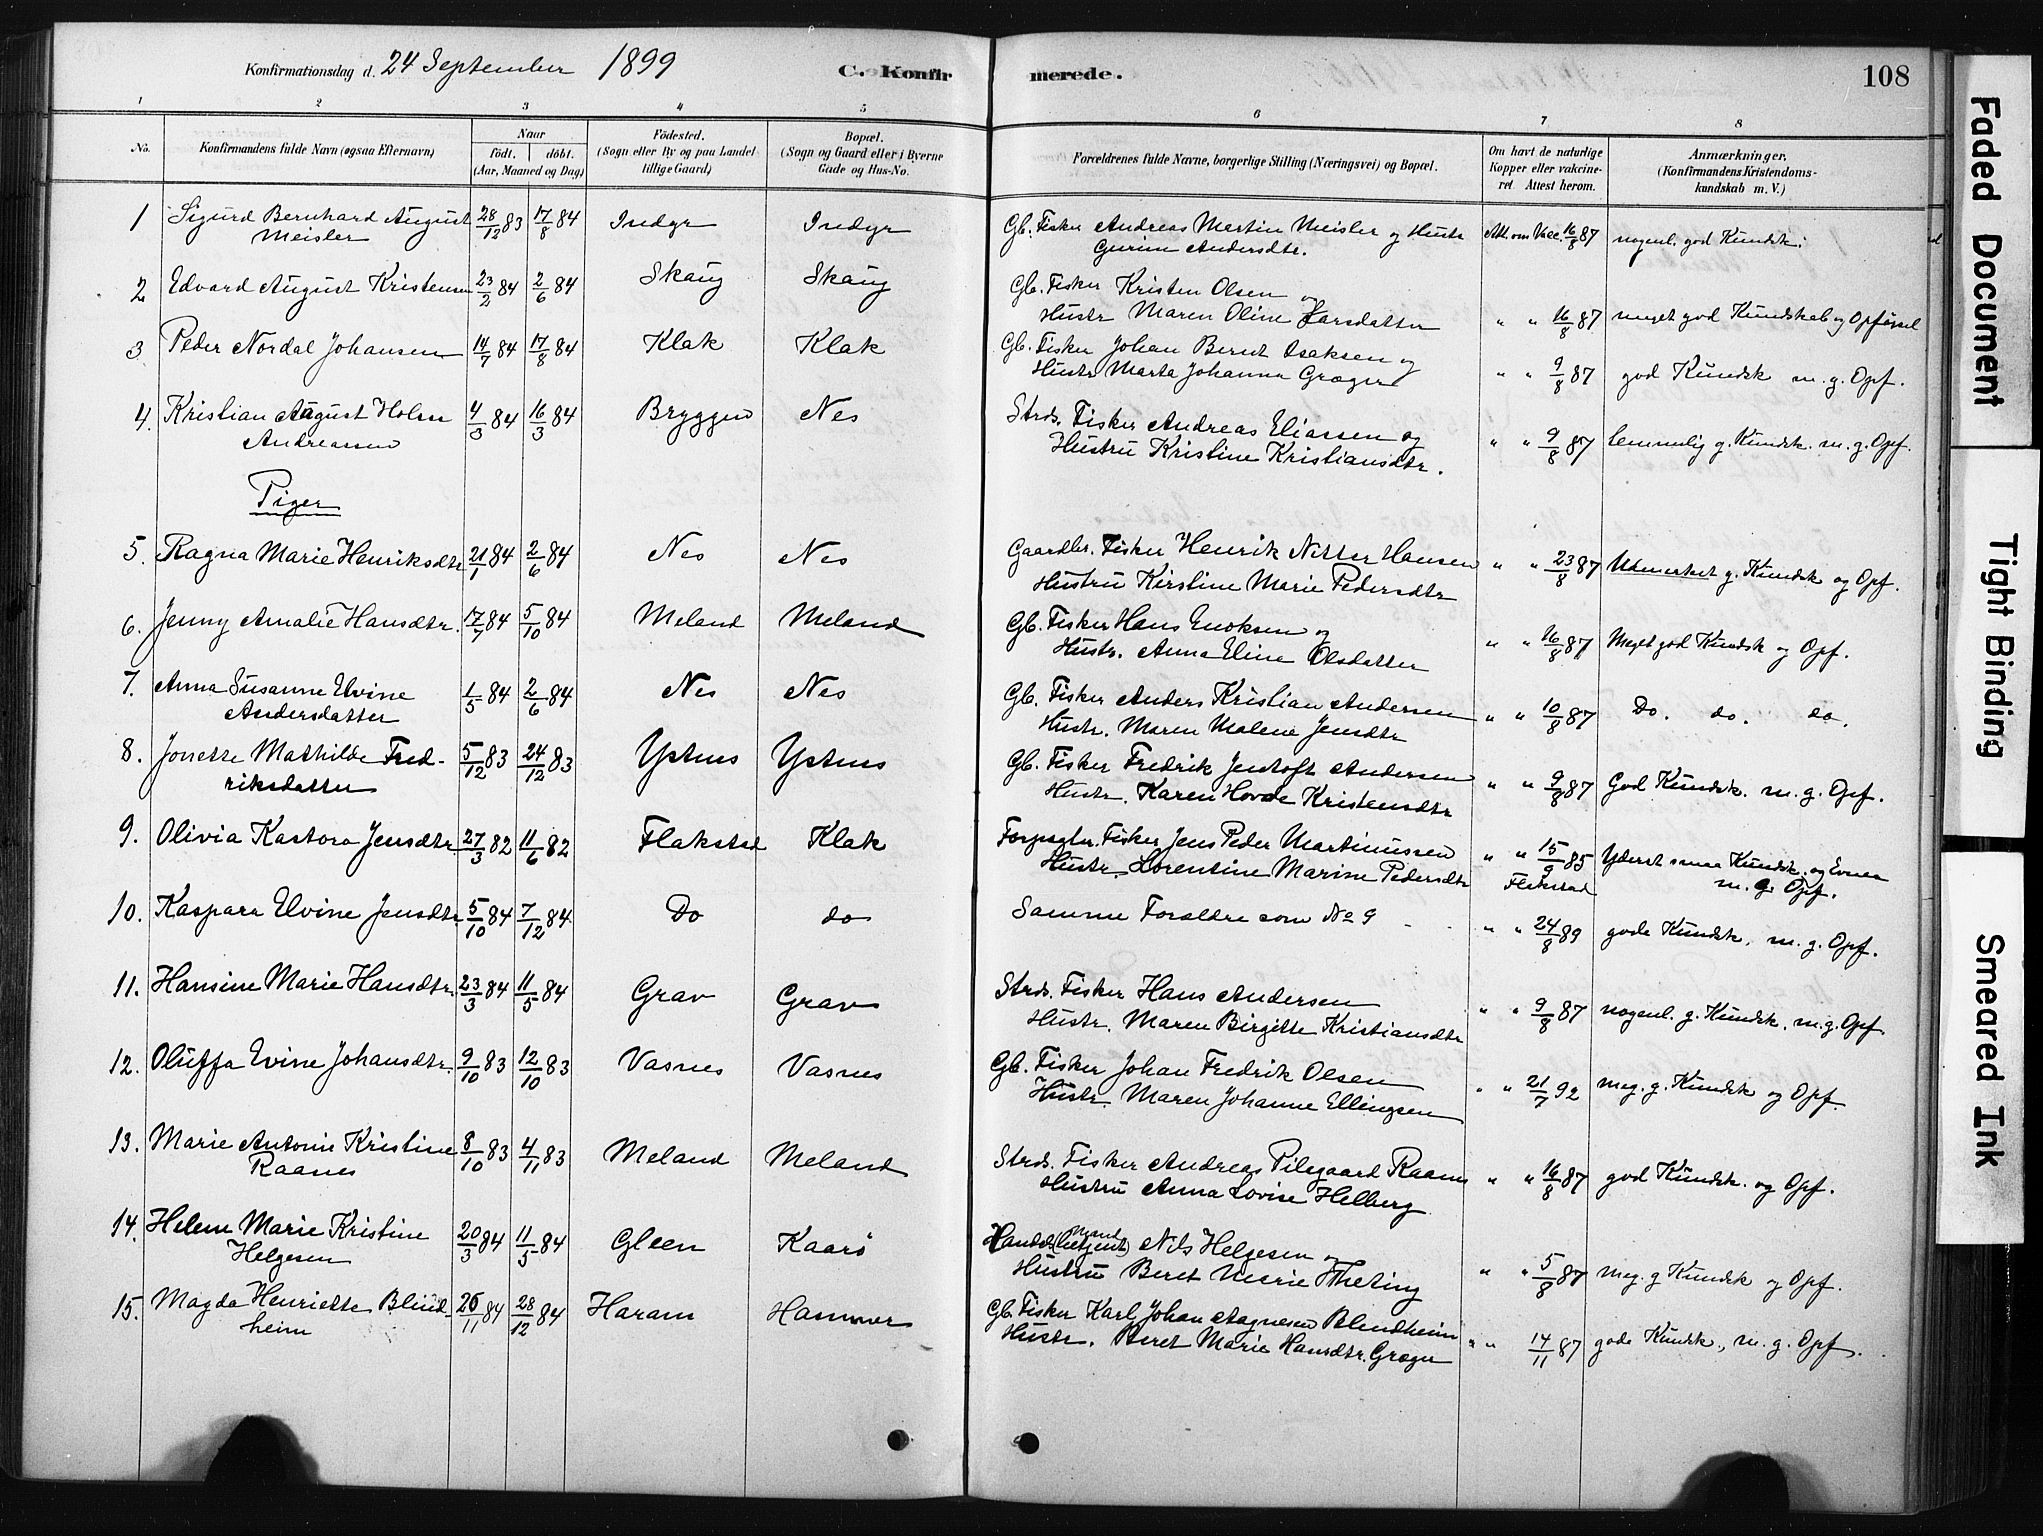 Konfirmationsdag d. 24 September 1899 C. Konfirmerede. 108
1 2 3 4 5 6 7 8
No. Konfirmandens fulde Navn (ogsaa Efternavn) Naar födt. döbt. (Aar, Maaned og Dag) Födested. (Sogn eller By og paa Landet tillige Gaard) Bopæl. (Sogn og Gaard eller i Byerne Gade og Hus-No. Forældrenes fulde Navne, borgerlige Stilling (Næringsvei) og Bopæl. Om havt de naturlige Kopper eller vakcineret Attest herom. Anmærkninger. (Konfirmandens Kristendomskundskab m. V.)
1 Sigurd Bernhard August 28/12 83 17/8 84 Indyr Indyr Gb. Fisker Andreas Martin Meisler og Hustr Att. om Vacc. 16/8 87 nogenl. god Kundsk.
Meisler Gurine Andersdtr.
2 Edvard August Kristensen 23/2 84 2/6 84 Skaug Skaug Gb. Fisker Kristen Olsen og
Hustr Maren Oline Larsdatter " " 16/8 87 meget god Kundskab og Opførsel
3 Peder Nordal Johansen 14/7 84 17/8 84 Klak Klak Gb. Fisker Johan Bernt Isaksen og
Hustr Marta Johanna Græger " " 9/8 87 god Kundsk m. g. Opf.
4. Kristian August Holm 4/3 84 16/3 84 Bryggen Nes Strds. Fisker Andreas Eliassen og
Andreassen Hustru Kristine Kristiansdtr. " " 9/8 87 temmelig g. Kundsk. m. g. Opf.
Piger
5. Ragna Marie Henriksdtr 21/1 84 2/6 84 Nes Nes Gaardbr. Fisker Henrik Nitter Hansen " " 23/8 87 Udmerket g. Kundsk og Opf.
Hustru Kirstine Marie Pedersdtr
6. Jenny Amalie Hansdtr. 17/7 84 5/10 84 Meland Meland Gb. Fisker Hans Enoksen og
Hustr. Anna Eline Olsdatter " " 16/8 87 Meget god Kundsk og Opf.
7. Anna Susanne Elvine 1/5 84 2/6 84 Nes Nes Gb. Fisker Anders Kristian Andersen
Andersdatter Hustr. Maren Malene Jensdtr " " 10/8 87 Do. do. do.
8. Jonette Mathilde Fred- 5/12 83 24/12 83 Ystnes Ystnes Gb. Fisker Fredrik Jentoft Andersen
riksdatter Hustr. Karen Hovde Kristensdtr " " 9/8 87 God Kundsk. m. g. Opf.
9. Olivia Kastora Jensdtr. 27/3 82 11/6 82 Flakstad Klak Forpagter. Fisker Jens Peder Martinussen
Hustr. Lorentine Marine Pedersdtr " " 15/9 85 Yderst smaa Kundsk. og Evner
Flakstad m. g. Opf.
10. Kaspara Elvine Jensdtr. 5/10 84 7/12 84 Do do Samme Forældre som No 9 " " 24/8 89 gode Kundsk. m. g. Opf.
11. Hansine Marie Hansdtr. 23/3 84 11/5 84 Grav Grav Strds. Fisker Hans Andersen
Hustr. Maren Birgitte Kristiansdtr " " 9/8 87 nogenl. g. Kundsk. m. g. Opf.
12. Oluffa Evine Johansdtr. 9/10 83 12/10 83 Vasnes Vasnes Gb. Fisker Johan Fredrik Olsen
Hustr. Maren Johanne Ellingsen " " 21/7 92 meg. g. Kundsk og Opf.
13. Marie Antonie Kristine 8/10 83 4/11 83 Meland Meland Strds. Fisker Andreas Pilegaard Raanes
Raanes Hustru Anna Lovise Helberg " " 16/8 87 god Kundsk. og Opf.
14. Helene Marie Kristine 20/3 84 11/5 84 Gleen Kaarø Handels(betjent) mand Nils Helgesen og
Helgesen Hustru Beret Marie Theting " " 5/8 87 meg. g Kundsk og Opf.
15. Magda Henriette Blind- 26/11 84 28/12 84 Haram Hammer Gb. Fisker Karl Johan Aagnesen Blendheim
heim Hustr. Beret Marie Hansdtr. Græger " " 14/11 87 gode Kundsk., m. g. Opf.
Faded Document
Tight Binding
Smeared Ink